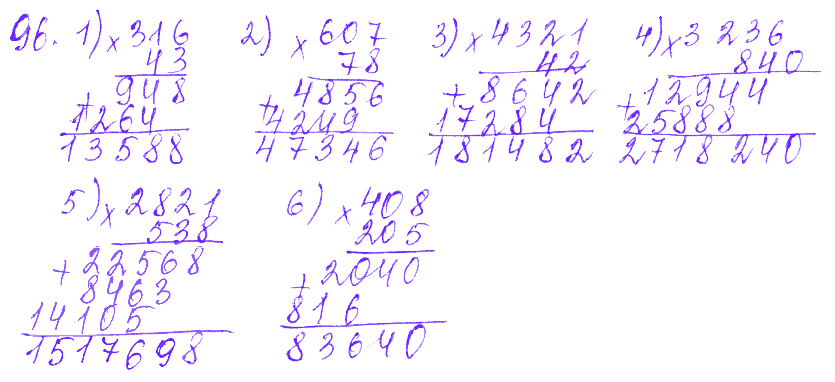 96. 1) × 316 2) × 607 3) × 4321 4) × 3236
43 78 42 840
+ 948 + 4856 + 8642 + 12944
1264 4249 17284 25888
13588 47346 181482 2718240
5) × 2821 6) × 408
538 205
+ 22568 + 2040
8463 816
14105 83640
1517698